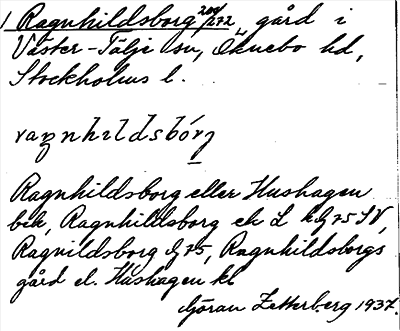 1 Ragnhildsborg 209/272, gård i
Väster-Tälje sn, Öknebo hd,
Stockholms l.
ragnhildsbórg
Ragnhildsborg eller Hushagen
bik, Ragnhildsborg ek L
Ragnildsborg Ragnhildsborgs
gård el. Hushagen kl
Göran Zetterberg 1937.